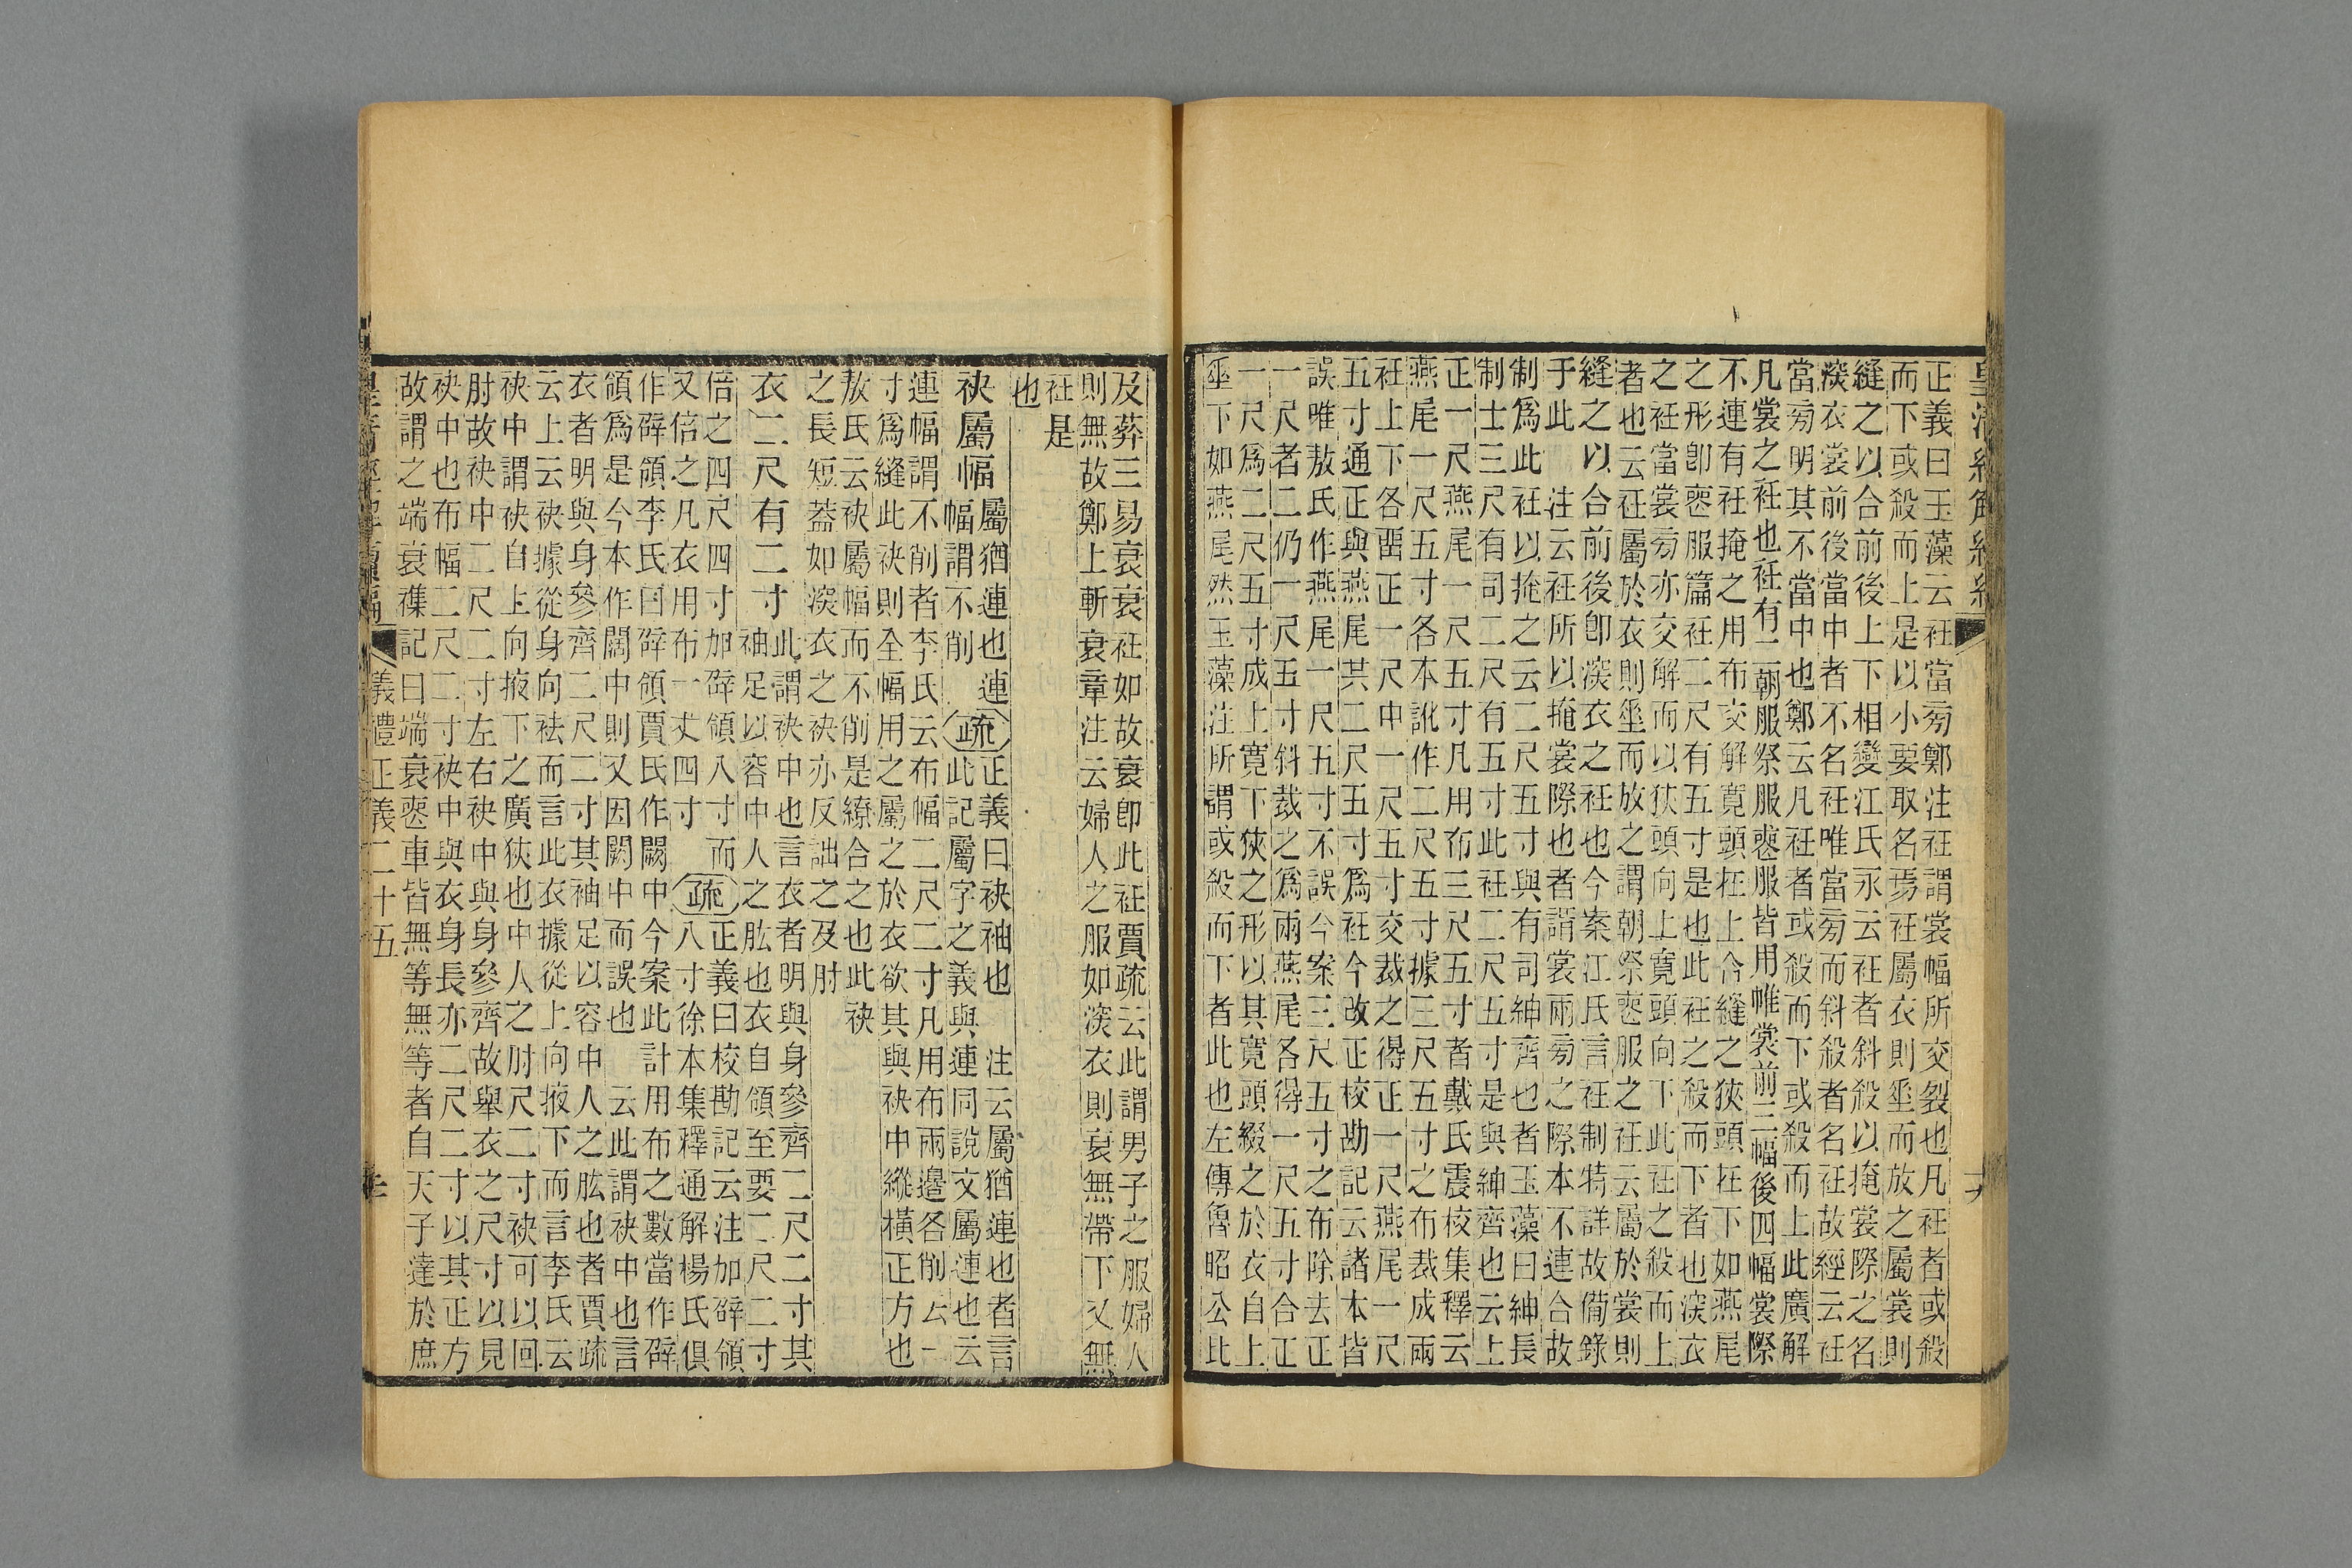 正義曰玉藻云衽當旁鄭注衽謂裳幅所交裂也凡衽者或殺
而下或殺而上是以小要取名焉衽屬衣則垂而放之屬裳則
縫之以合前後上下相變江氏永云衽者斜殺以掩裳際之名
深衣裳前後當中者不名衽唯當旁而斜殺者名衽故經云衽
當旁明其不當中也鄭云凡衽者或殺而下或殺而上此廣解
凡裳之衽也衽有二朝服祭服喪服皆用帷裳前三幅後四幅裳際
不連有衽掩之用布交解寬頭在上合縫之狹頭在下如燕尾
之形卽喪服篇衽二尺有五寸是也此衽之殺而下者也深衣
之衽當裳旁亦交解而以狹頭向上寬頭向下此衽之殺而上
者也云衽屬於衣則垂而放之謂朝祭喪服之衽云屬於裳則
縫之以合前後卽深衣之衽也今案江氏言衽制特詳故備錄
于此　注云衽所以掩裳際也者謂裳兩旁之際本不連合故
制爲此衽以掩之云二尺五寸與有司紳齊也者玉藻曰紳長
制士三尺有司二尺有五寸此衽二尺五寸是與紳齊也云上
正一尺燕尾一尺五寸凡用布三尺五寸者戴氏震校集釋云
燕尾一尺五寸各本訛作二尺五寸據三尺五寸之布裁成兩
衽上下各畱正一尺中一尺五寸交裁之得正一尺燕尾一尺
五寸通正與燕尾其二尺五寸爲衽今改正校勘記云諸本皆
誤唯敖氏作燕尾一尺五寸不誤今案三尺五寸之布除去正
一尺者二仍一尺五寸斜裁之爲兩燕尾各得一尺五寸合正
一尺爲二尺五寸成上寬下狹之形以其寬頭綴之於衣自上
垂下如燕尾然玉藻注所謂或殺而下者此也左傳魯昭公比
及葬三易衰衰衽如故衰卽此衽賈疏云此謂男子之服婦人
則無故鄭上斬衰章注云婦人之服如深衣則衰無帶下又無
衽是
也
袂屬幅
屬猶連也連
幅謂不削
疏
正義曰袂袖也　注云屬猶連也者言
此記屬字之義與連同說文屬連也云
連幅謂不削者李氏云布幅二尺二寸凡用布兩邊各削去一
寸爲縫此袂則全幅用之屬之於衣欲其與袂中縱橫正方也
敖氏云袂屬幅而不削是繚合之也此袂
之長短蓋如深衣之袂亦反詘之及肘
衣二尺有二寸
此謂袂中也言衣者明與身參齊二尺二寸其
袖足以容中人之肱也衣自領至要二尺二寸
倍之四尺四寸加辟領八寸而
又倍之凡衣用布一丈四寸
疏
正義曰校勘記云注加辟領
八寸徐本集釋通解楊氏俱
作辟領李氏曰辟領賈氏作闕中今案此計用布之數當作辟
領爲是今本作闊中則又因闕中而誤也　云此謂袂中也言
衣者明與身參齊二尺二寸其袖足以容中人之肱也者賈疏
云上云袂據從身向袪而言此衣據從上向掖下而言李氏云
袂中謂袂自上向掖下之廣狹也中人之肘尺二寸袂可以回
肘故袂中二尺二寸左右袂中與身參齊故舉衣之尺寸以見
袂中也布幅二尺二寸袂中與衣身長亦二尺二寸以其正方
故謂之端衰襍記曰端衰喪車皆無等無等者自天子達於庶
儀禮正義二十五